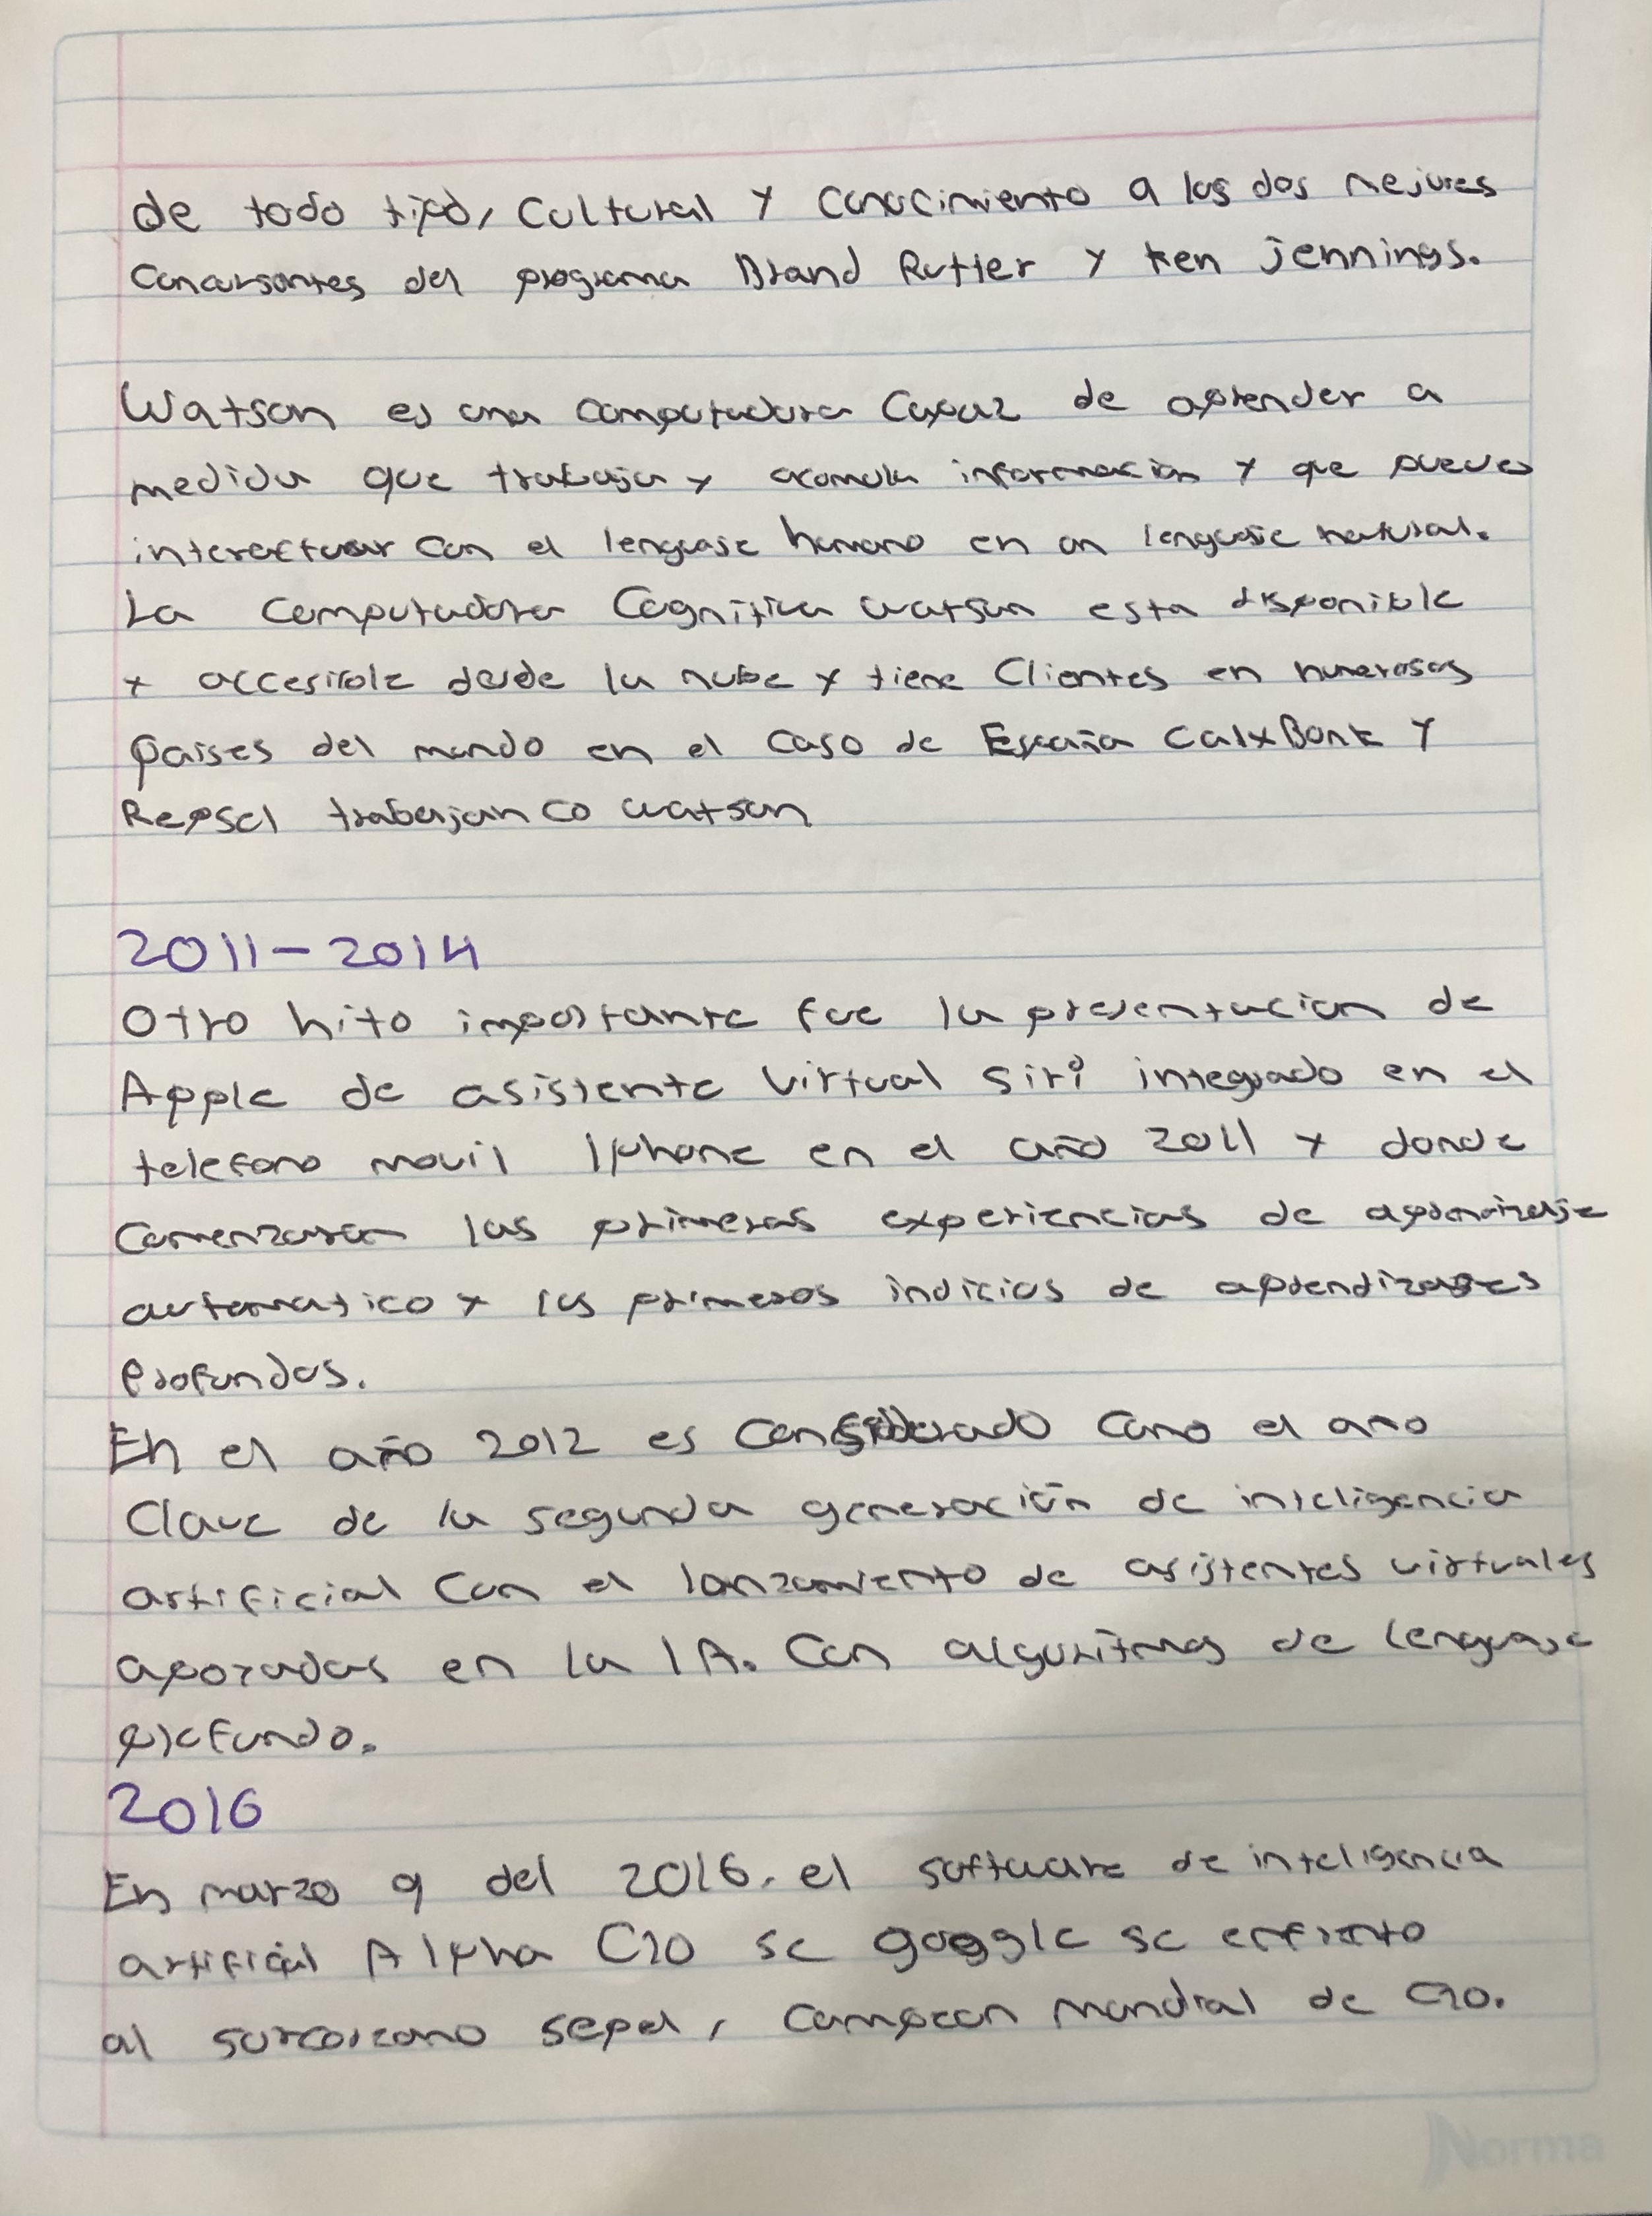 de todo tipo, Cultural y Conocimiento a los dos mejores
Concursantes del programa Brand Rutter y Ken jennings.
Watson es una computadora Capaz de aprender a
medida que trabaja y acomula información y que puede
interactuar con el lenguaje humano en un lenguaje natural.
La Computadora Cognitiva watson esta disponible
y accesible desde la nube y tiene Clientes en numerosos
paises del mundo en el caso de España CaixBank Y
Repsol trabajan co watson
2011-2014
Otro hito importante fue la presentacion de
Apple de asistente Virtual Siri integrado en el
telefono movil Iphone en el año 2011 y donde
Comenzaron las primeras experiencias de aprendizaje
automatico y los primeros indicios de aprendizajes
Profundos.
En el año 2012 es Considerado Como el ano
Clave de la segunda generación de inteligencia
artificial Con el lanzamiento de asistentes virtuales
apoyados en la IA. Con algoritmos de lenguaje
profundo.
2016
En marzo 9 del 2016. el software de inteligencia
artificial Alpha GO se google se enfrento
al surcoreano sepol, Campeon mundial de GO.
Norma